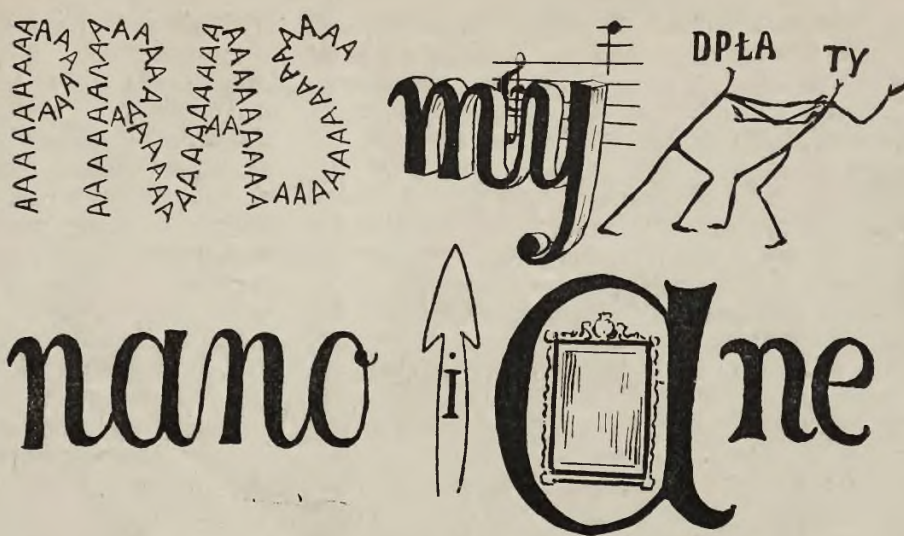 PRAS my DPŁA TY
nano i a ne